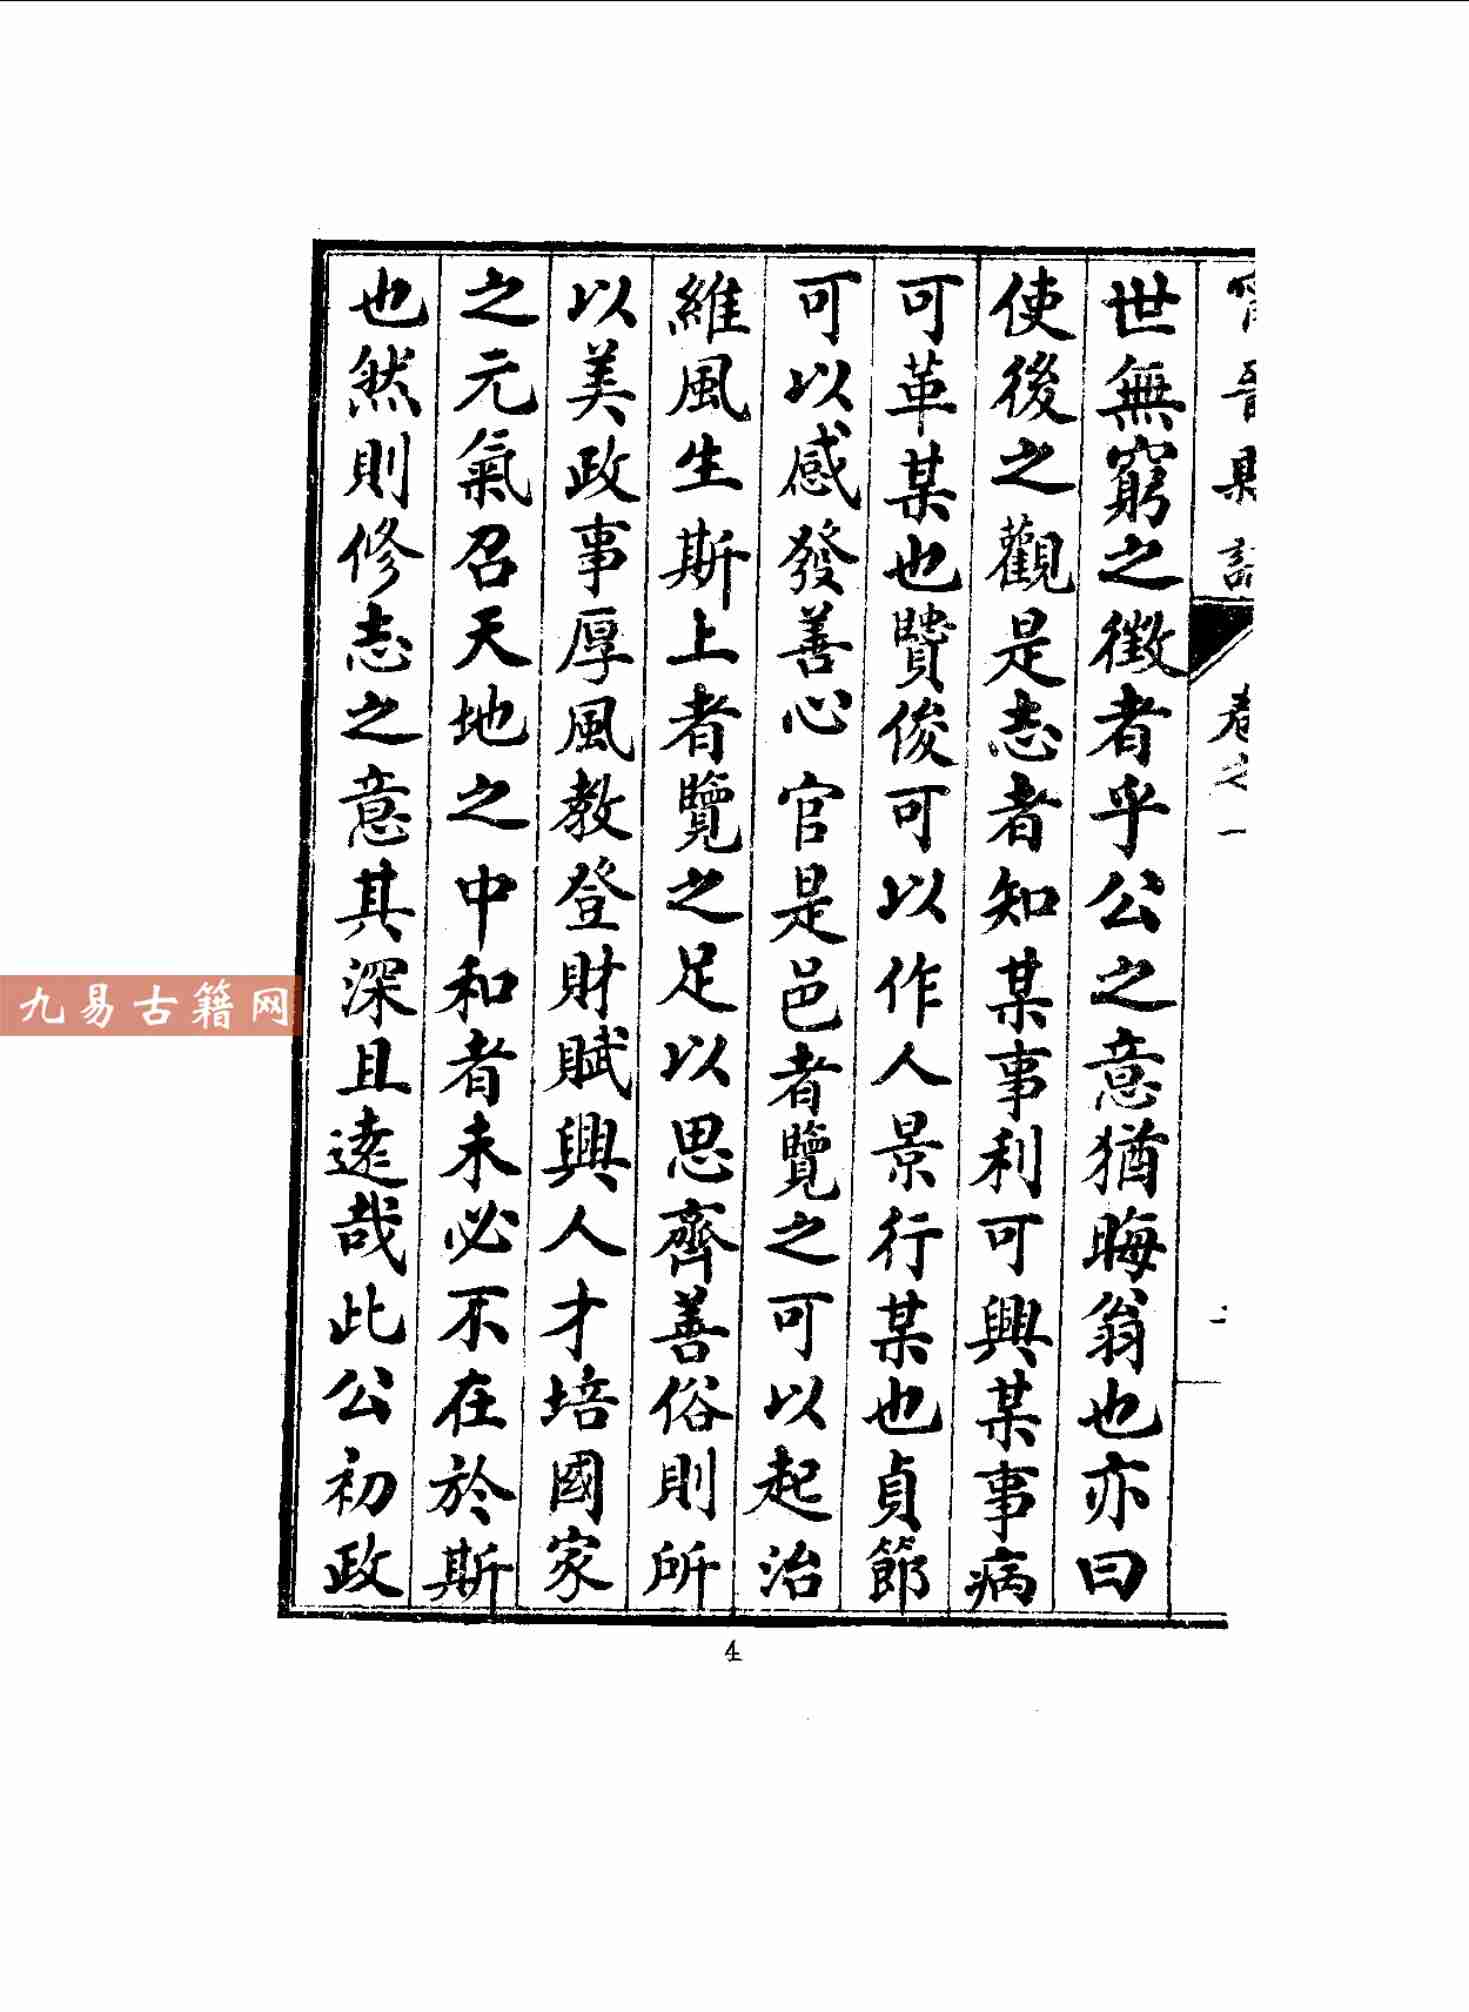 甯晉縣誌 卷之一
世無窮之徵者乎公之意猶晦翁也亦曰
使後之觀是志者知某事利可興某事病
可革某也賢俊可以作人景行某也貞節
可以感發善心官是邑者覽之可以起治
維風生斯上者覽之足以思齊善俗則所
以美政事厚風教登財賦興人才培國家
之元氣召天地之中和者未必不在於斯
也然則修志之意其深且遠哉此公初政
4
九易古籍网